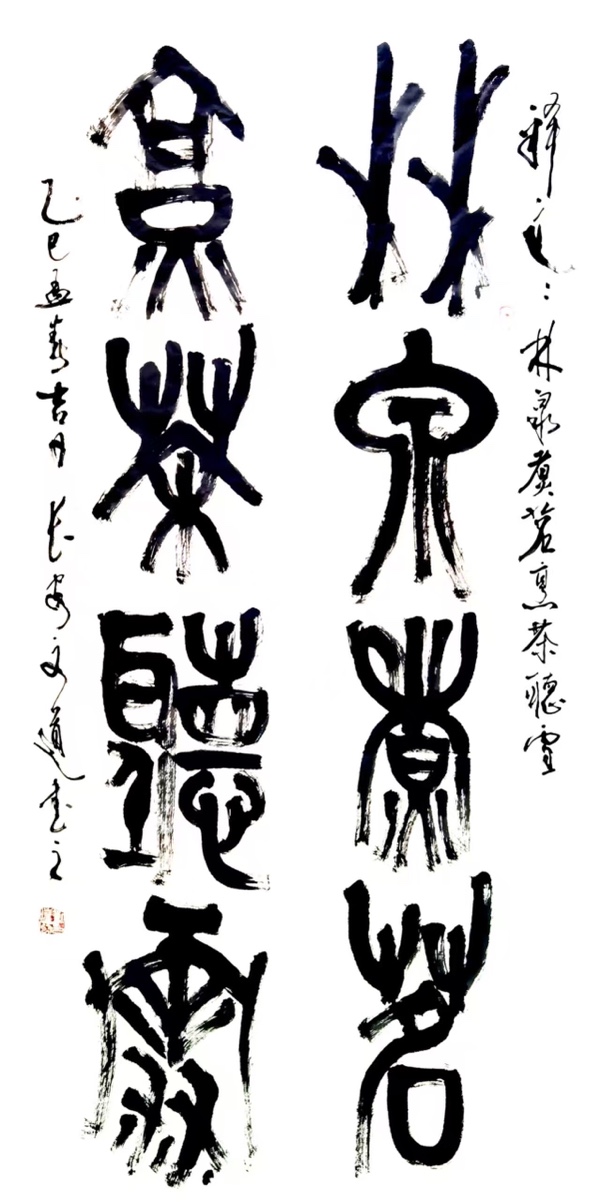 釋文：林泉煮茗烹茶聽雪
林泉煮茗
烹茶聽雪
乙巳孟春吉月 长安文道书之